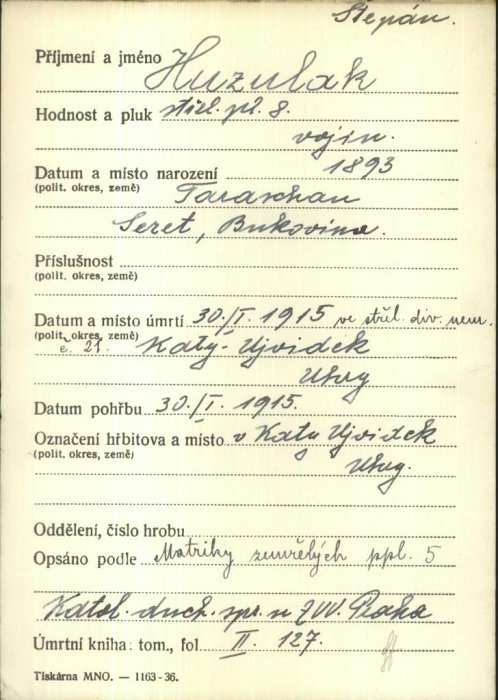 Štěpán.
Příjmení a jméno Huzulak
Hodnost a pluk střel. pl. 8.
vojín.
Datum a místo narození 1893
(polit. okres, země) Taraschan
Seret, Bukovina.
Příslušnost
(polit. okres, země)
Datum a místo úmrtí 30./I. 1915 ve střel. div. nem.
(polit. okres, země) č. 21. Katy-Ujvidek
Uhry
Datum pohřbu 30./I. 1915.
Označení hřbitova a místo v Katy Ujvidek
(polit. okres, země)
Uhry.
Oddělení, číslo hrobu
Opsáno podle Matriky zemřelých ppl. 5
Katol. duch. spr. u ZVV. Praha
Úmrtní kniha: tom., fol II. 127.
Tiskárna MNO. — 1163-36.